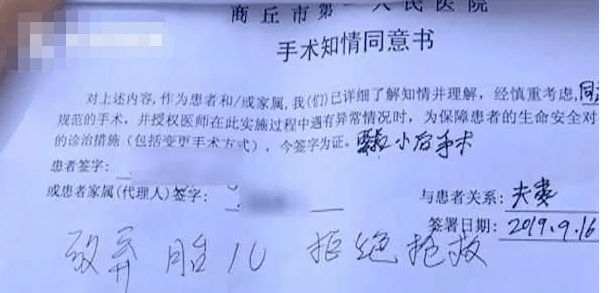 商丘市第一人民医院
手术知情同意书
对上述内容,作为患者和/或家属,我(们)已详细了解知情并理解,经慎重考虑,同
规范的手术,并授权医师在此实施过程中遇有异常情况时,为保障患者的生命安全对
的诊治措施(包括变更手术方式),今签字为证。 手术
患者签字:
或患者家属(代理人)签字: 与患者关系: 夫妻
签署日期: 2019.9.16
放弃胎儿 拒绝抢救